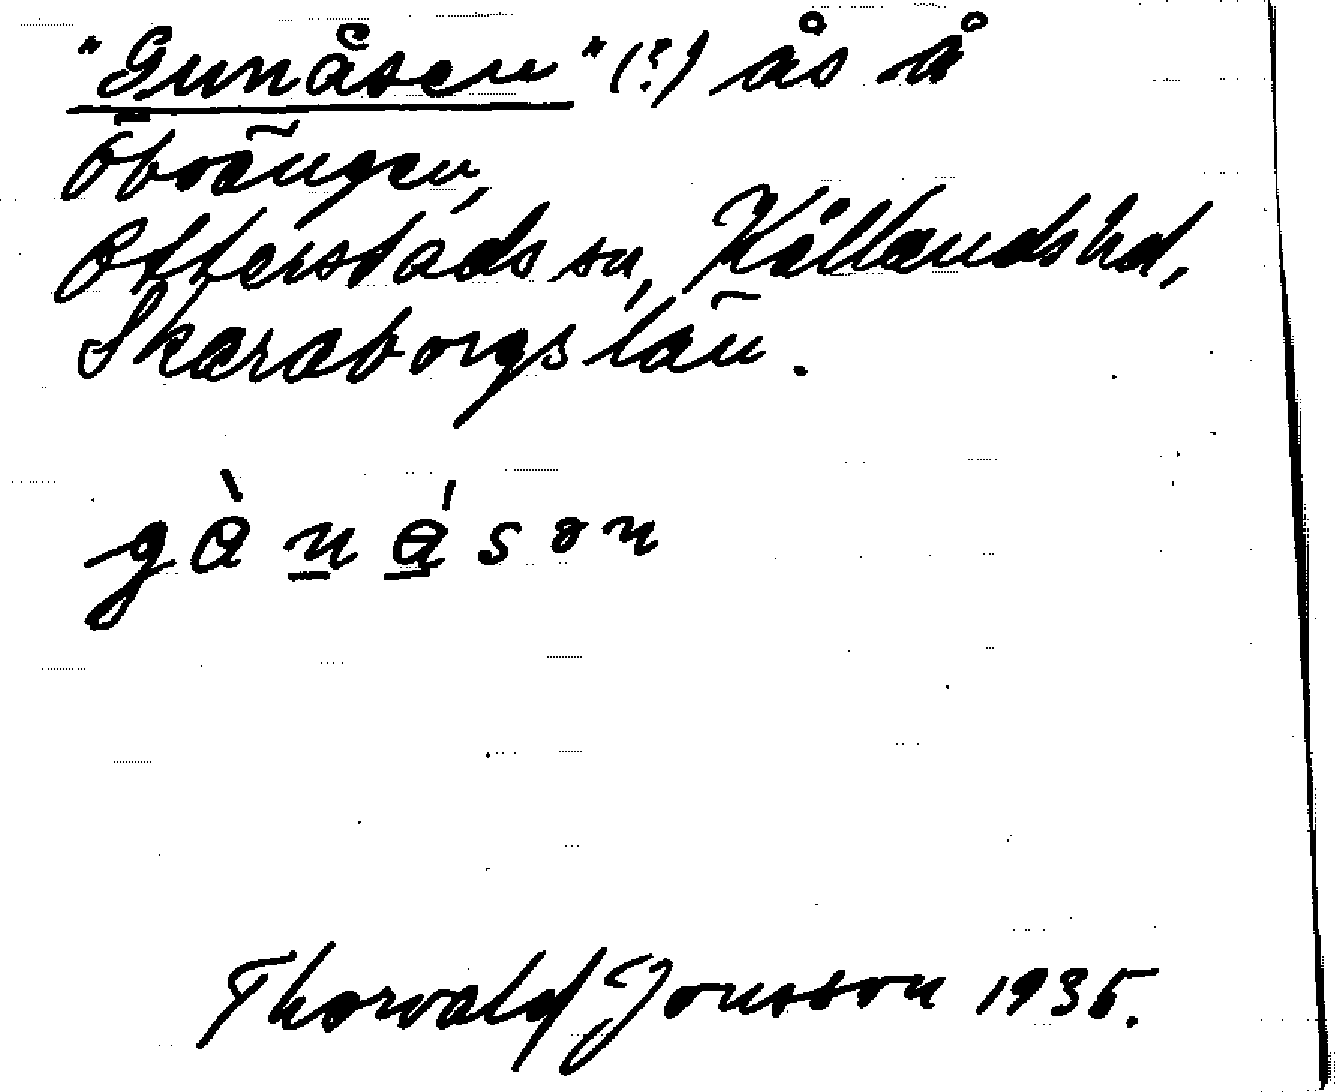 "Gunåsen" (?) ås å
Öboängen,
Otterstads sn, Kållands hd,
Skaraborgs län.
Thorvald Jonsson 1935.